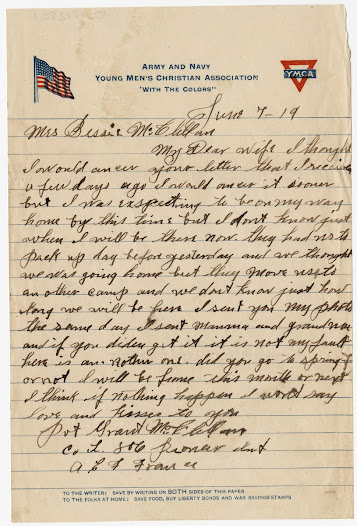 ARMY AND NAVY
YOUNG MEN'S CHRISTIAN ASSOCIATION
"WITH THE COLORS"
YMCA
June 7-19
Mrs Bessie McClellan
My Dear Wife I thought
I would answer your letter that I received
a few days ago I would answer it sooner
but I was expecting to be on my way
home by this time but I don't know just
when I will be there now. they had us to
pack up day before yesterday and we thought
we was going home but they move us to
an other camp and we don't know just how
long we will be here I sent you my photo
the same day I sent Mamma and grandma
and if you diden get it it is not my fault
here is an nother one. did you go to spring
or not I will be home this month or next
I think if nothing happen I wont say
love and kisses to you
Pvt Grant McClellan
Co L. 806 Pioneer Inf
A E F France
TO THE WRITER: SAVE BY WRITING ON BOTH SIDES OF THIS PAPER
TO THE FOLKS AT HOME: SAVE FOOD, BUY LIBERTY BONDS AND WAR SAVINGS STAMPS